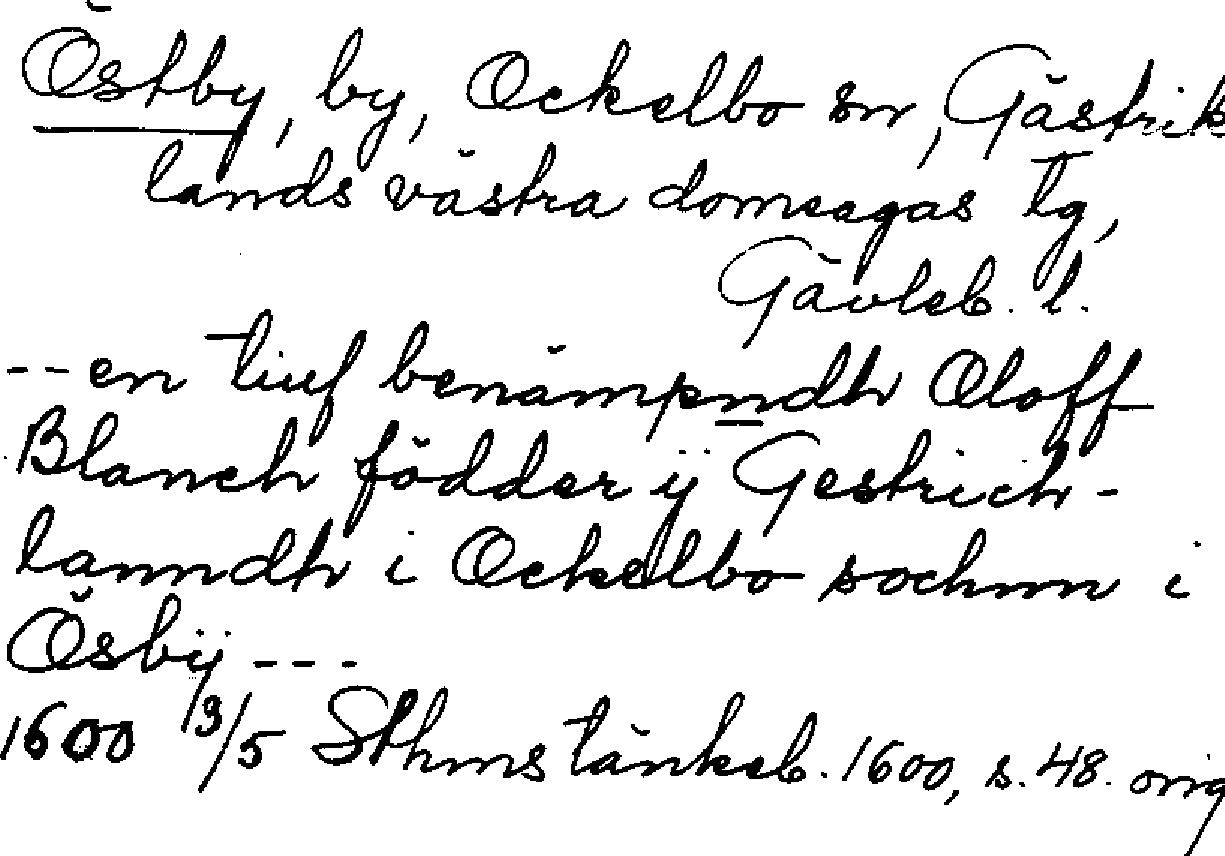 Östby, by, Ockelbo sn, Gästrik
lands västra domsagas tg,
Gävleb. l.
-- en tiuf benämpndh Oloff
Blanch födder ÿ Gestrich-
lanndh i Ockelbo sochnn i
Ösbÿ ---
1600 13/5 Sthms tänkeb. 1600, s. 48. orig